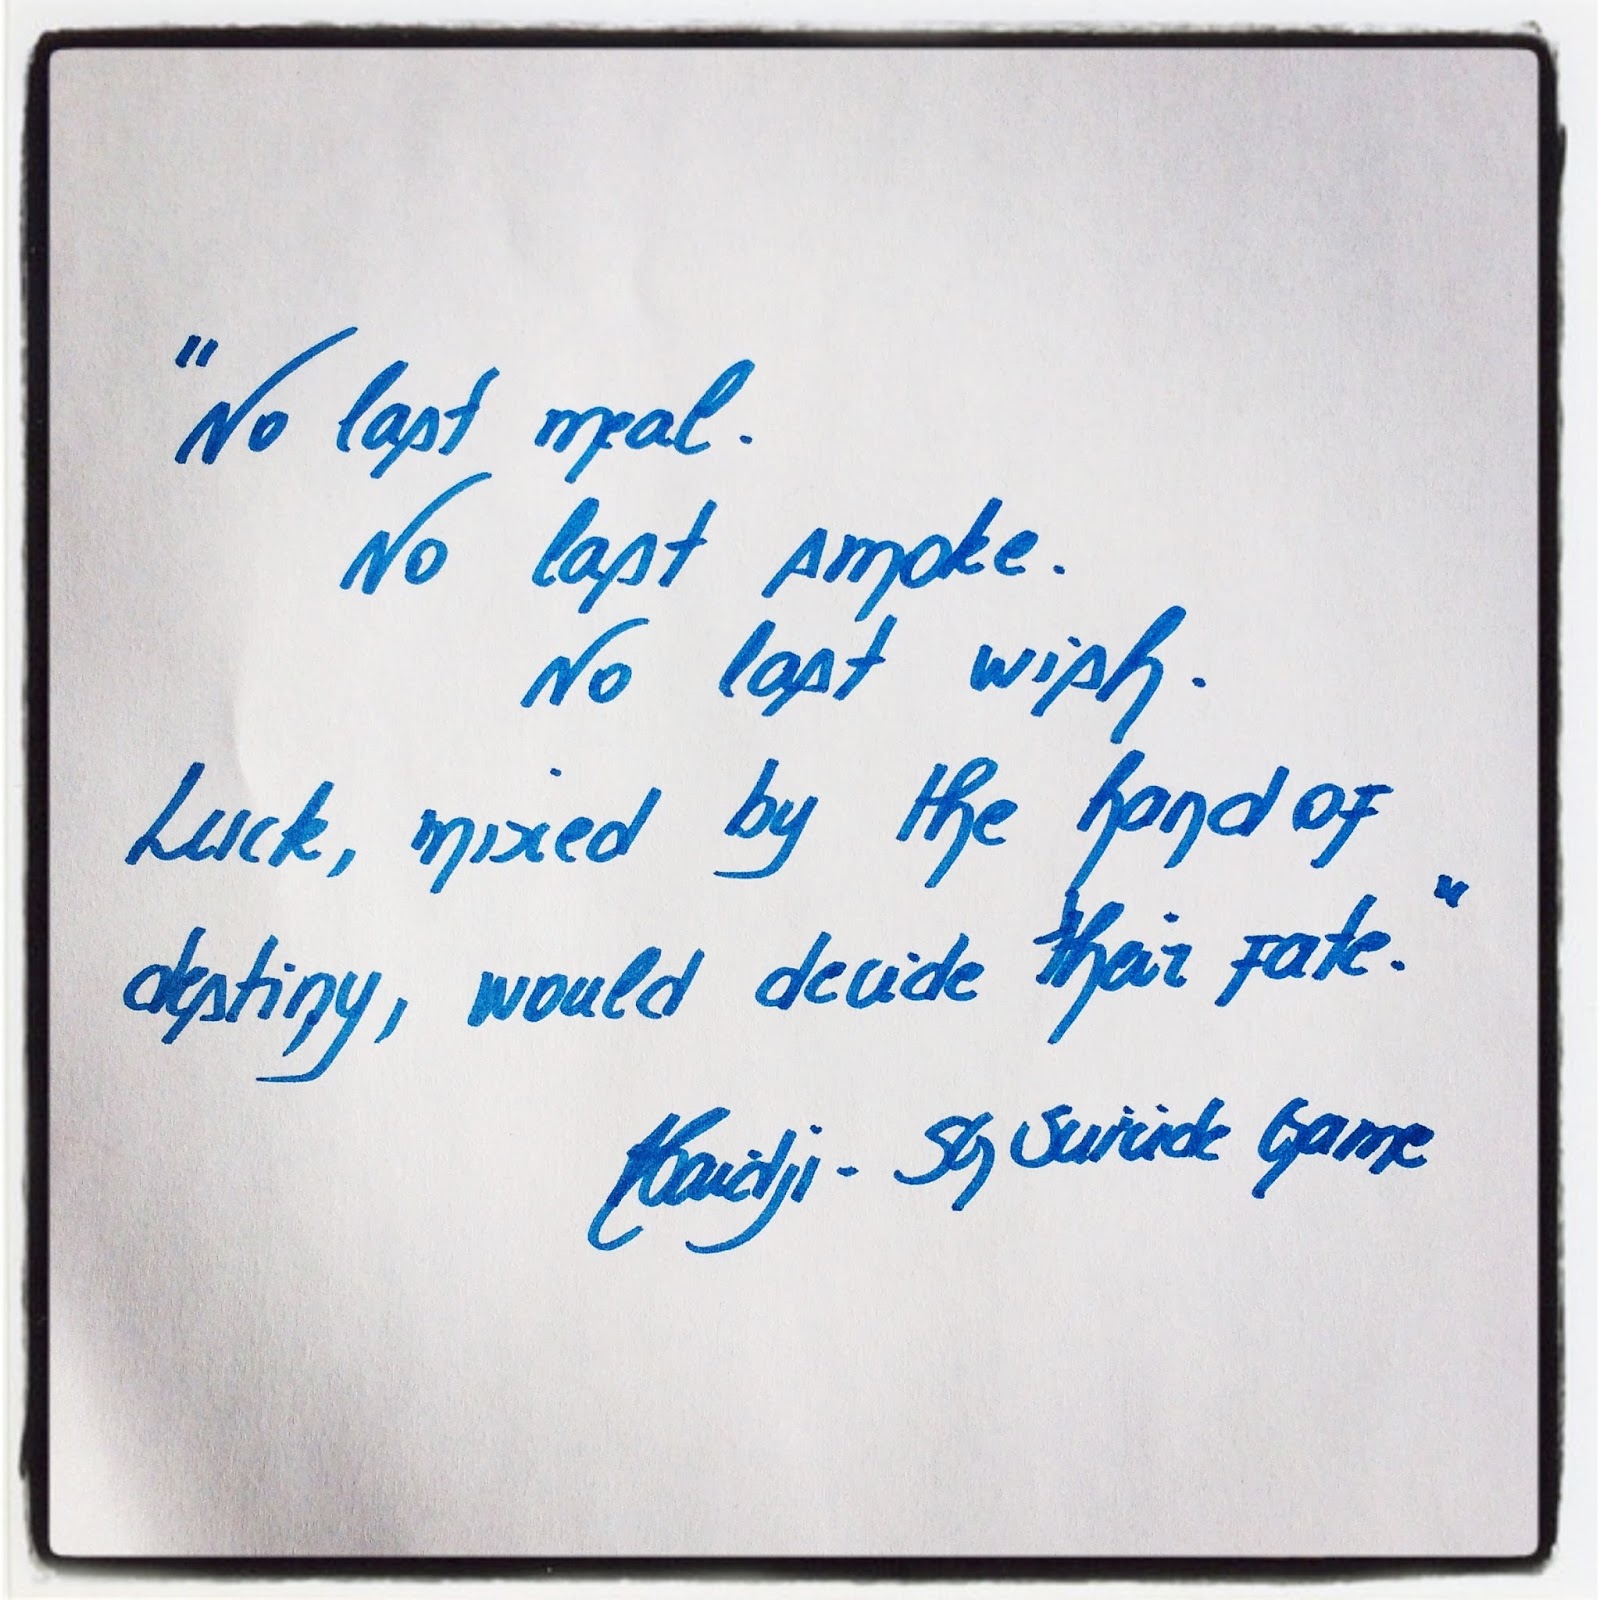 "No last meal.
No last smoke.
No last wish.
Luck, mixed by the hand of
destiny, would decide their fate."
Haidji - SG Suicide Game